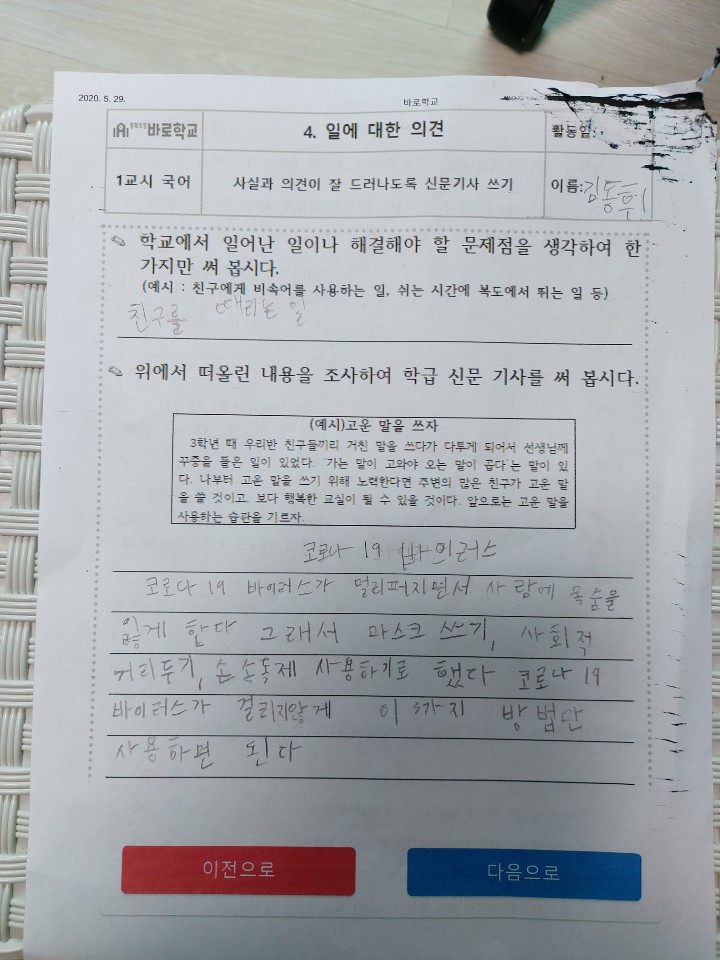 2020. 5. 29.
바로학교
바로학교
4. 일에 대한 의견
활동일:
1교시 국어
사실과 의견이 잘 드러나도록 신문기사 쓰기
이름: 김동휘
✎ 학교에서 일어난 일이나 해결해야 할 문제점을 생각하여 한
가지만 써 봅시다.
(예시 : 친구에게 비속어를 사용하는 일, 쉬는 시간에 복도에서 뛰는 일 등)
친구를 때리는 일
✎ 위에서 떠올린 내용을 조사하여 학급 신문 기사를 써 봅시다.
(예시)고운 말을 쓰자
3학년 때 우리반 친구들끼리 거친 말을 쓰다가 다투게 되어서 선생님께
꾸중을 들은 일이 있었다. '가는 말이 고와야 오는 말이 곱다'는 말이 있
다. 나부터 고운 말을 쓰기 위해 노력한다면 주변의 많은 친구가 고운 말
을 쓸 것이고, 보다 행복한 교실이 될 수 있을 것이다. 앞으로는 고운 말을
사용하는 습관을 기르자.
코로나 19 바이러스
코로나 19 바이러스가 멀리퍼지면서 사람에 목숨을
잃게 한다 그래서 마스크 쓰기, 사회적
거리두기, 손소독제 사용하기로 했다 코로나 19
바이러스가 걸리지않게 이 3가지 방법만
사용하면 된다
이전으로
다음으로